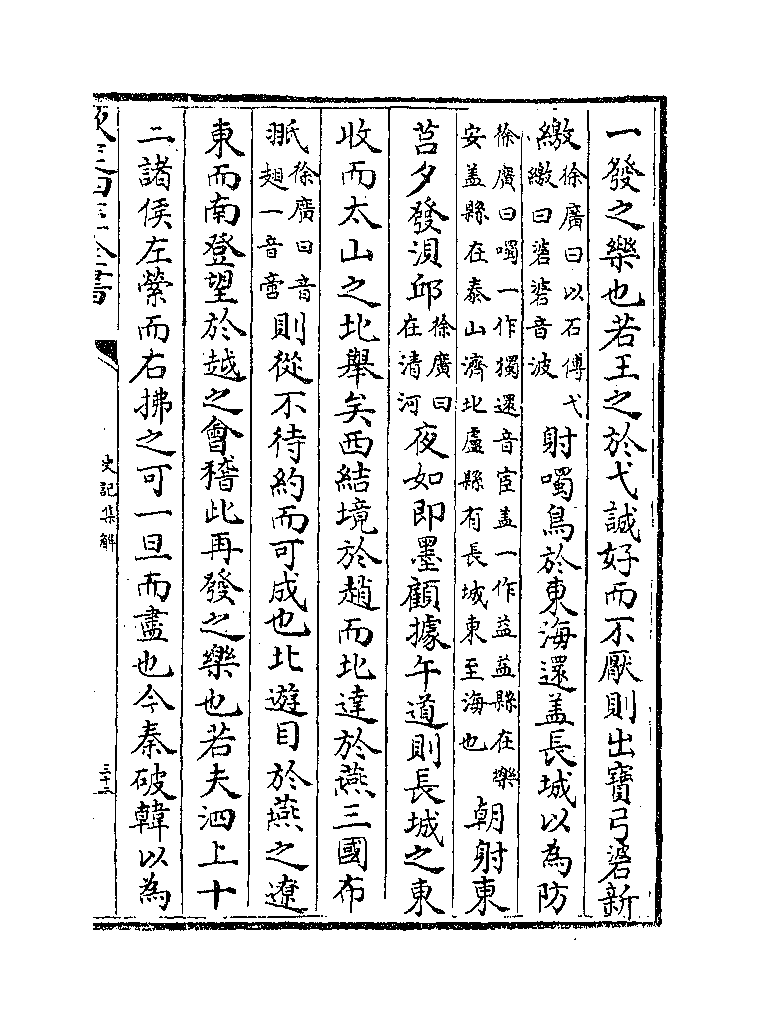 一發之樂也若王之於弋誠好而不厭則出寶弓碆新
繳
徐廣曰以石傅弋
繳繳曰碆碆音波
射噣鳥於東海還盖長城以為防
徐廣曰噣一作獨還音宦盖一作益益縣在樂
安盖縣在泰山濟北盧縣有長城東至海也
朝射東
莒夕發浿邱
徐廣曰
在清河
夜如即墨顧據午道則長城之東
收而太山之北舉矣西結境於趙而北達於燕三國布
徐廣曰音
翅一音啻
則從不待約而可成也北遊目於燕之遼
東而南登望於越之會稽此再發之樂也若夫泗上十
二諸侯左縈而右拂之可一旦而盡也今秦破韓以為
欽定四庫全書
史記集解
三十三